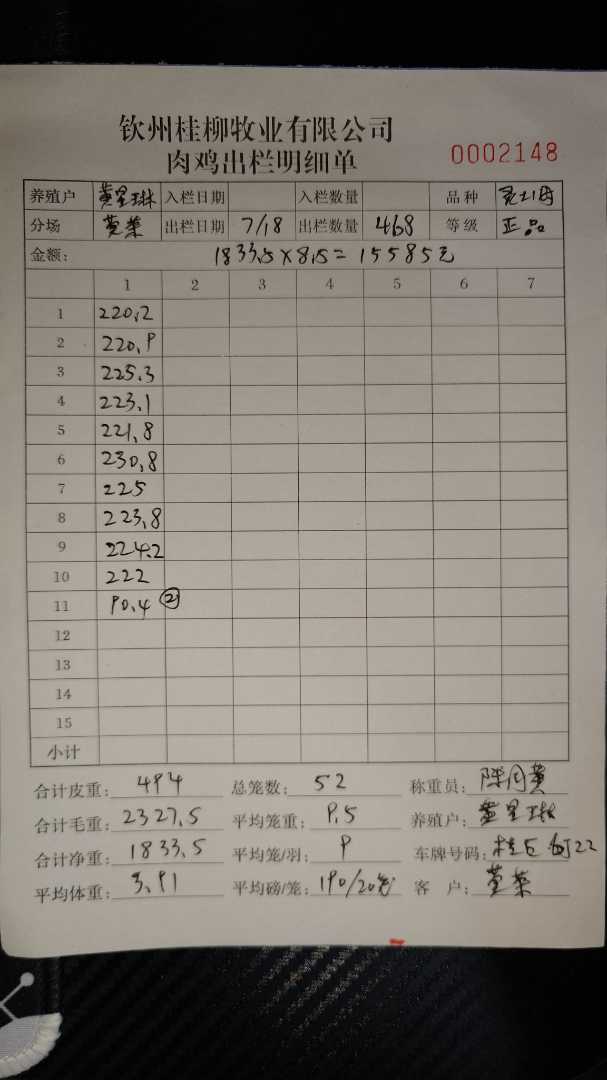 钦州桂柳牧业有限公司
肉鸡出栏明细单 0002148
养殖户 黄星琳 入栏日期 入栏数量 品种
分场 出栏日期 7/18 出栏数量 468 等级 正品
金额: 1833.5×8.5=15585元
1 2 3 4 5 6 7
1 220.2
2 220.9
3 225.3
4 223.1
5 221.8
6 230.8
7 225
8 223.8
9 224.2
10 222
11 90.4 ②
12
13
14
15
小计
合计皮重: 494 总笼数: 52 称重员: 陈月黄
合计毛重: 2327.5 平均笼重: 9.5 养殖户: 黄星琳
合计净重: 1833.5 平均笼/羽: 9 车牌号码:
平均体重: 3.91 平均磅/笼: 190/20 客户: